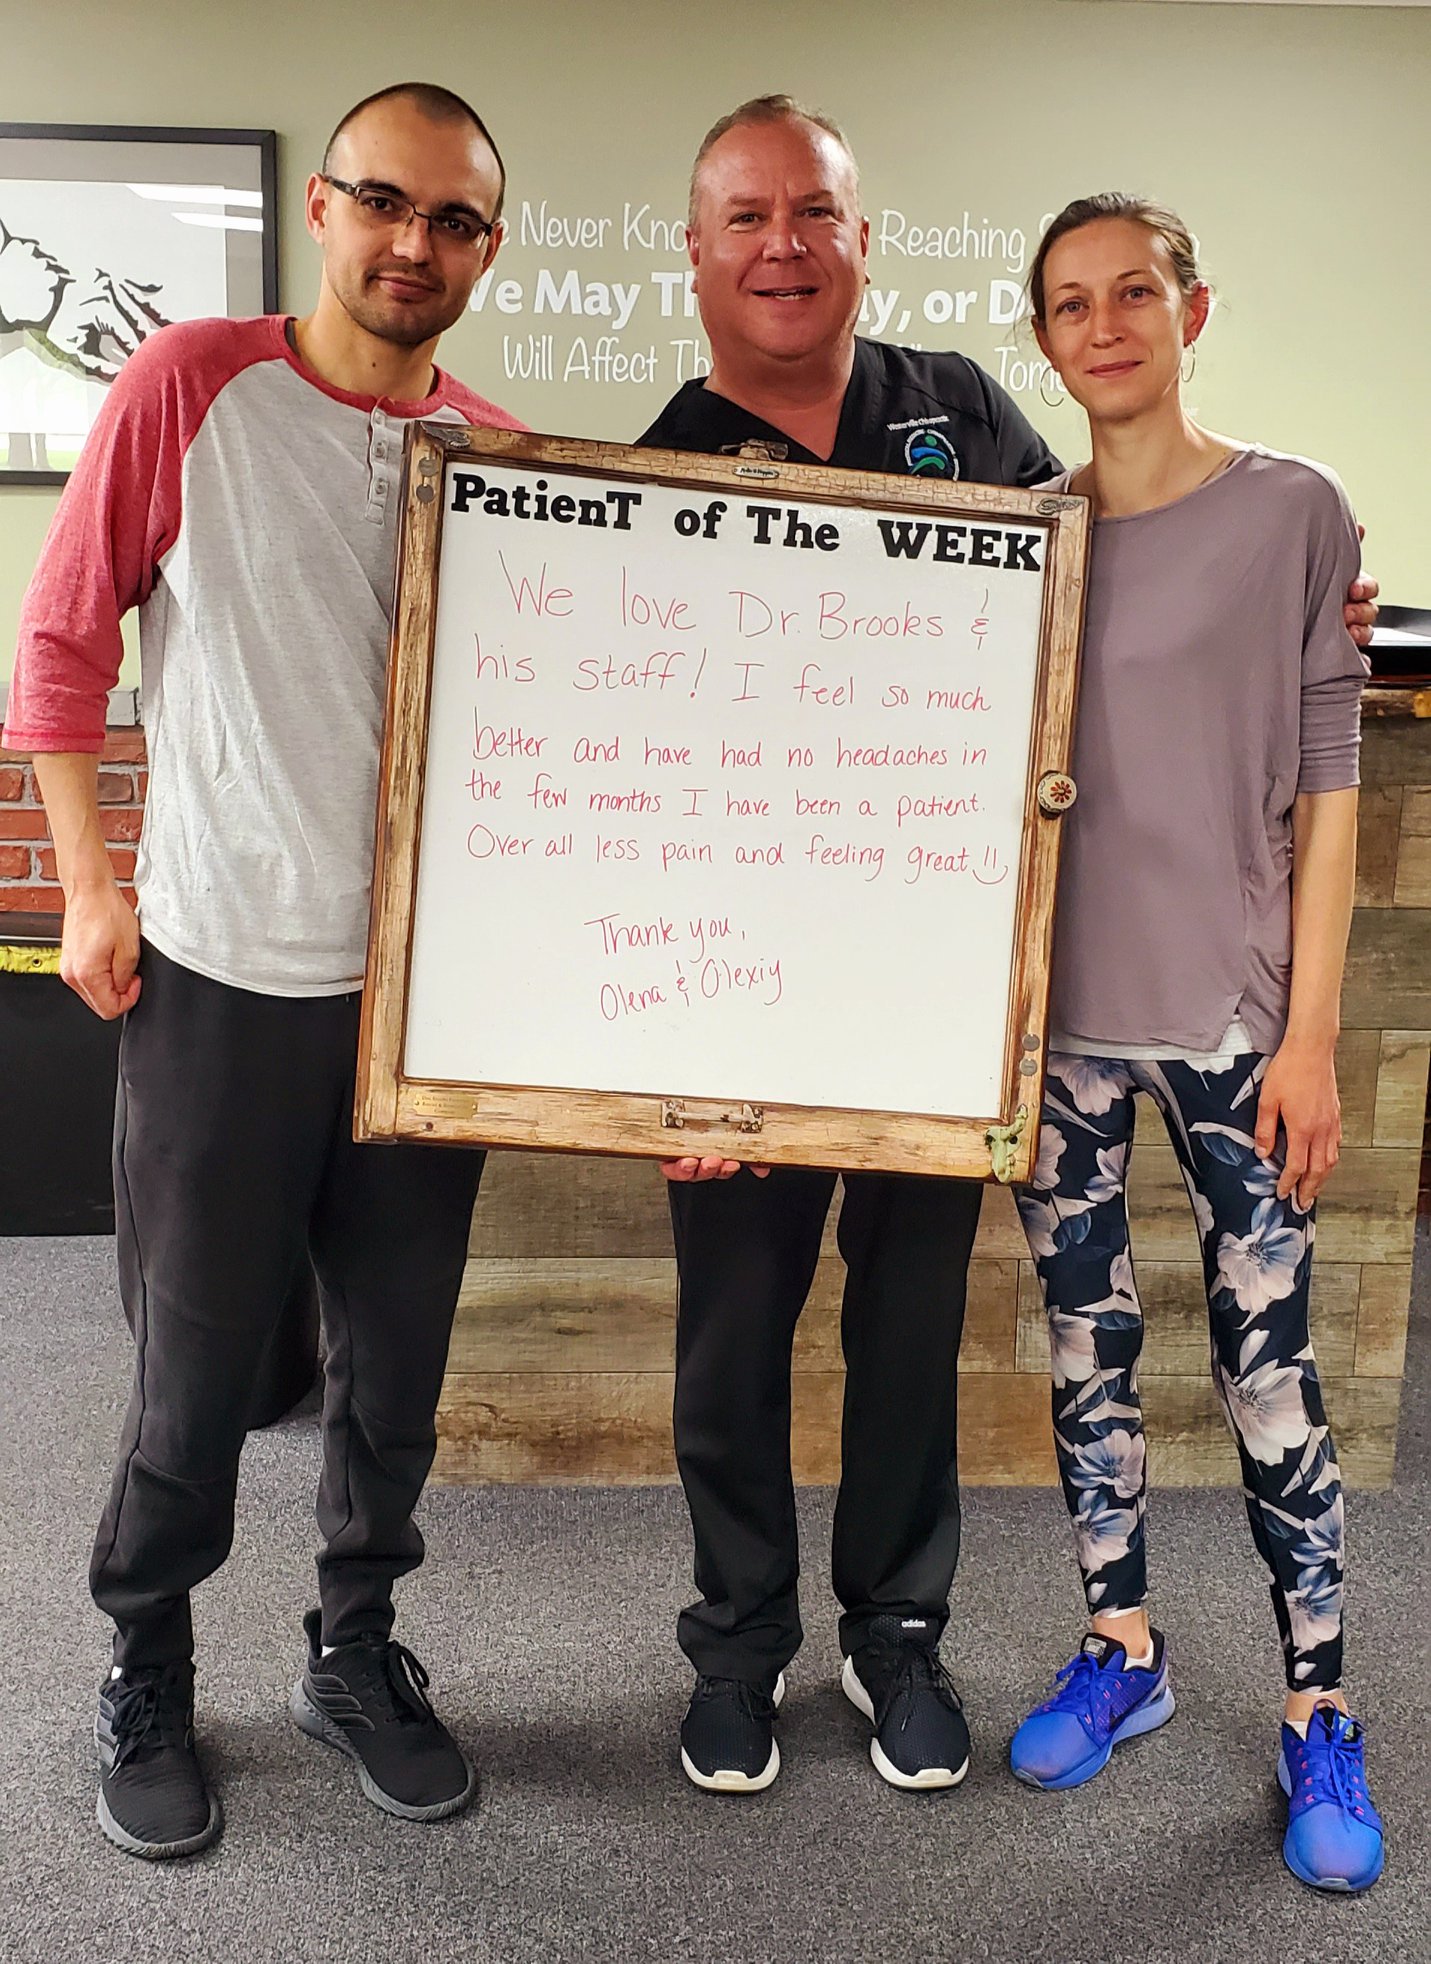 Never
Reaching
We May
or
Will Affect
Waterville Chiropractic
PatienT of The WEEK
We love Dr. Brooks &
his staff! I feel so much
better and have had no headaches in
the few months I have been a patient.
Over all less pain and feeling great
Thank you,
Olena & Olexiy
adidas